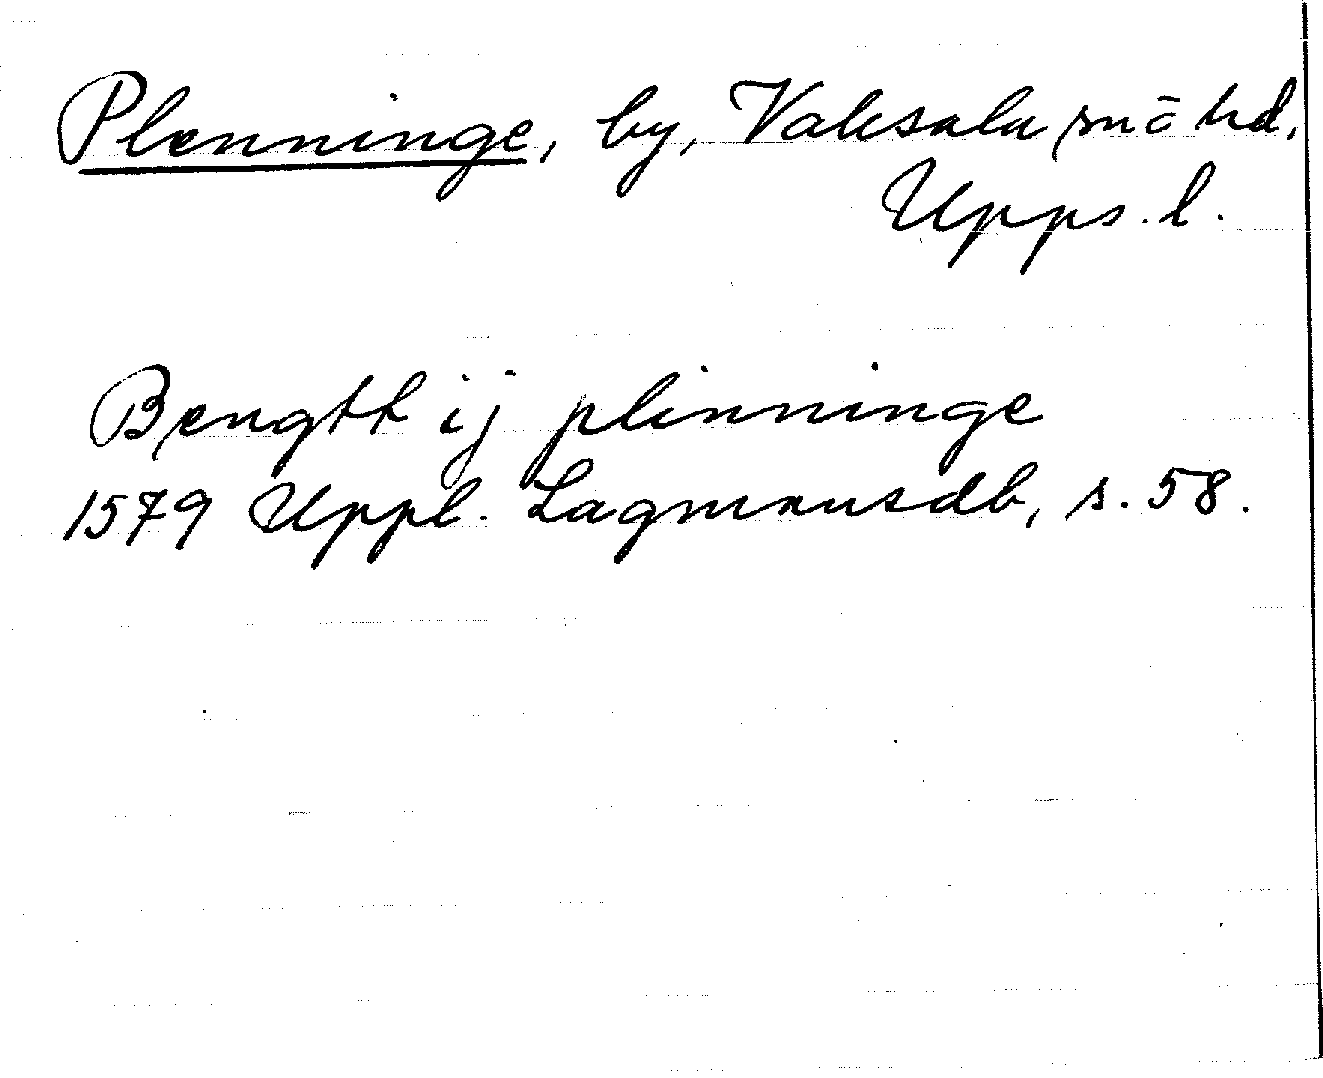 Plenninge, by, Vaksala sn o hd,
Upps. l.
Bengtt ij plinninge
1579 Uppl. Lagmansdb, s. 58.